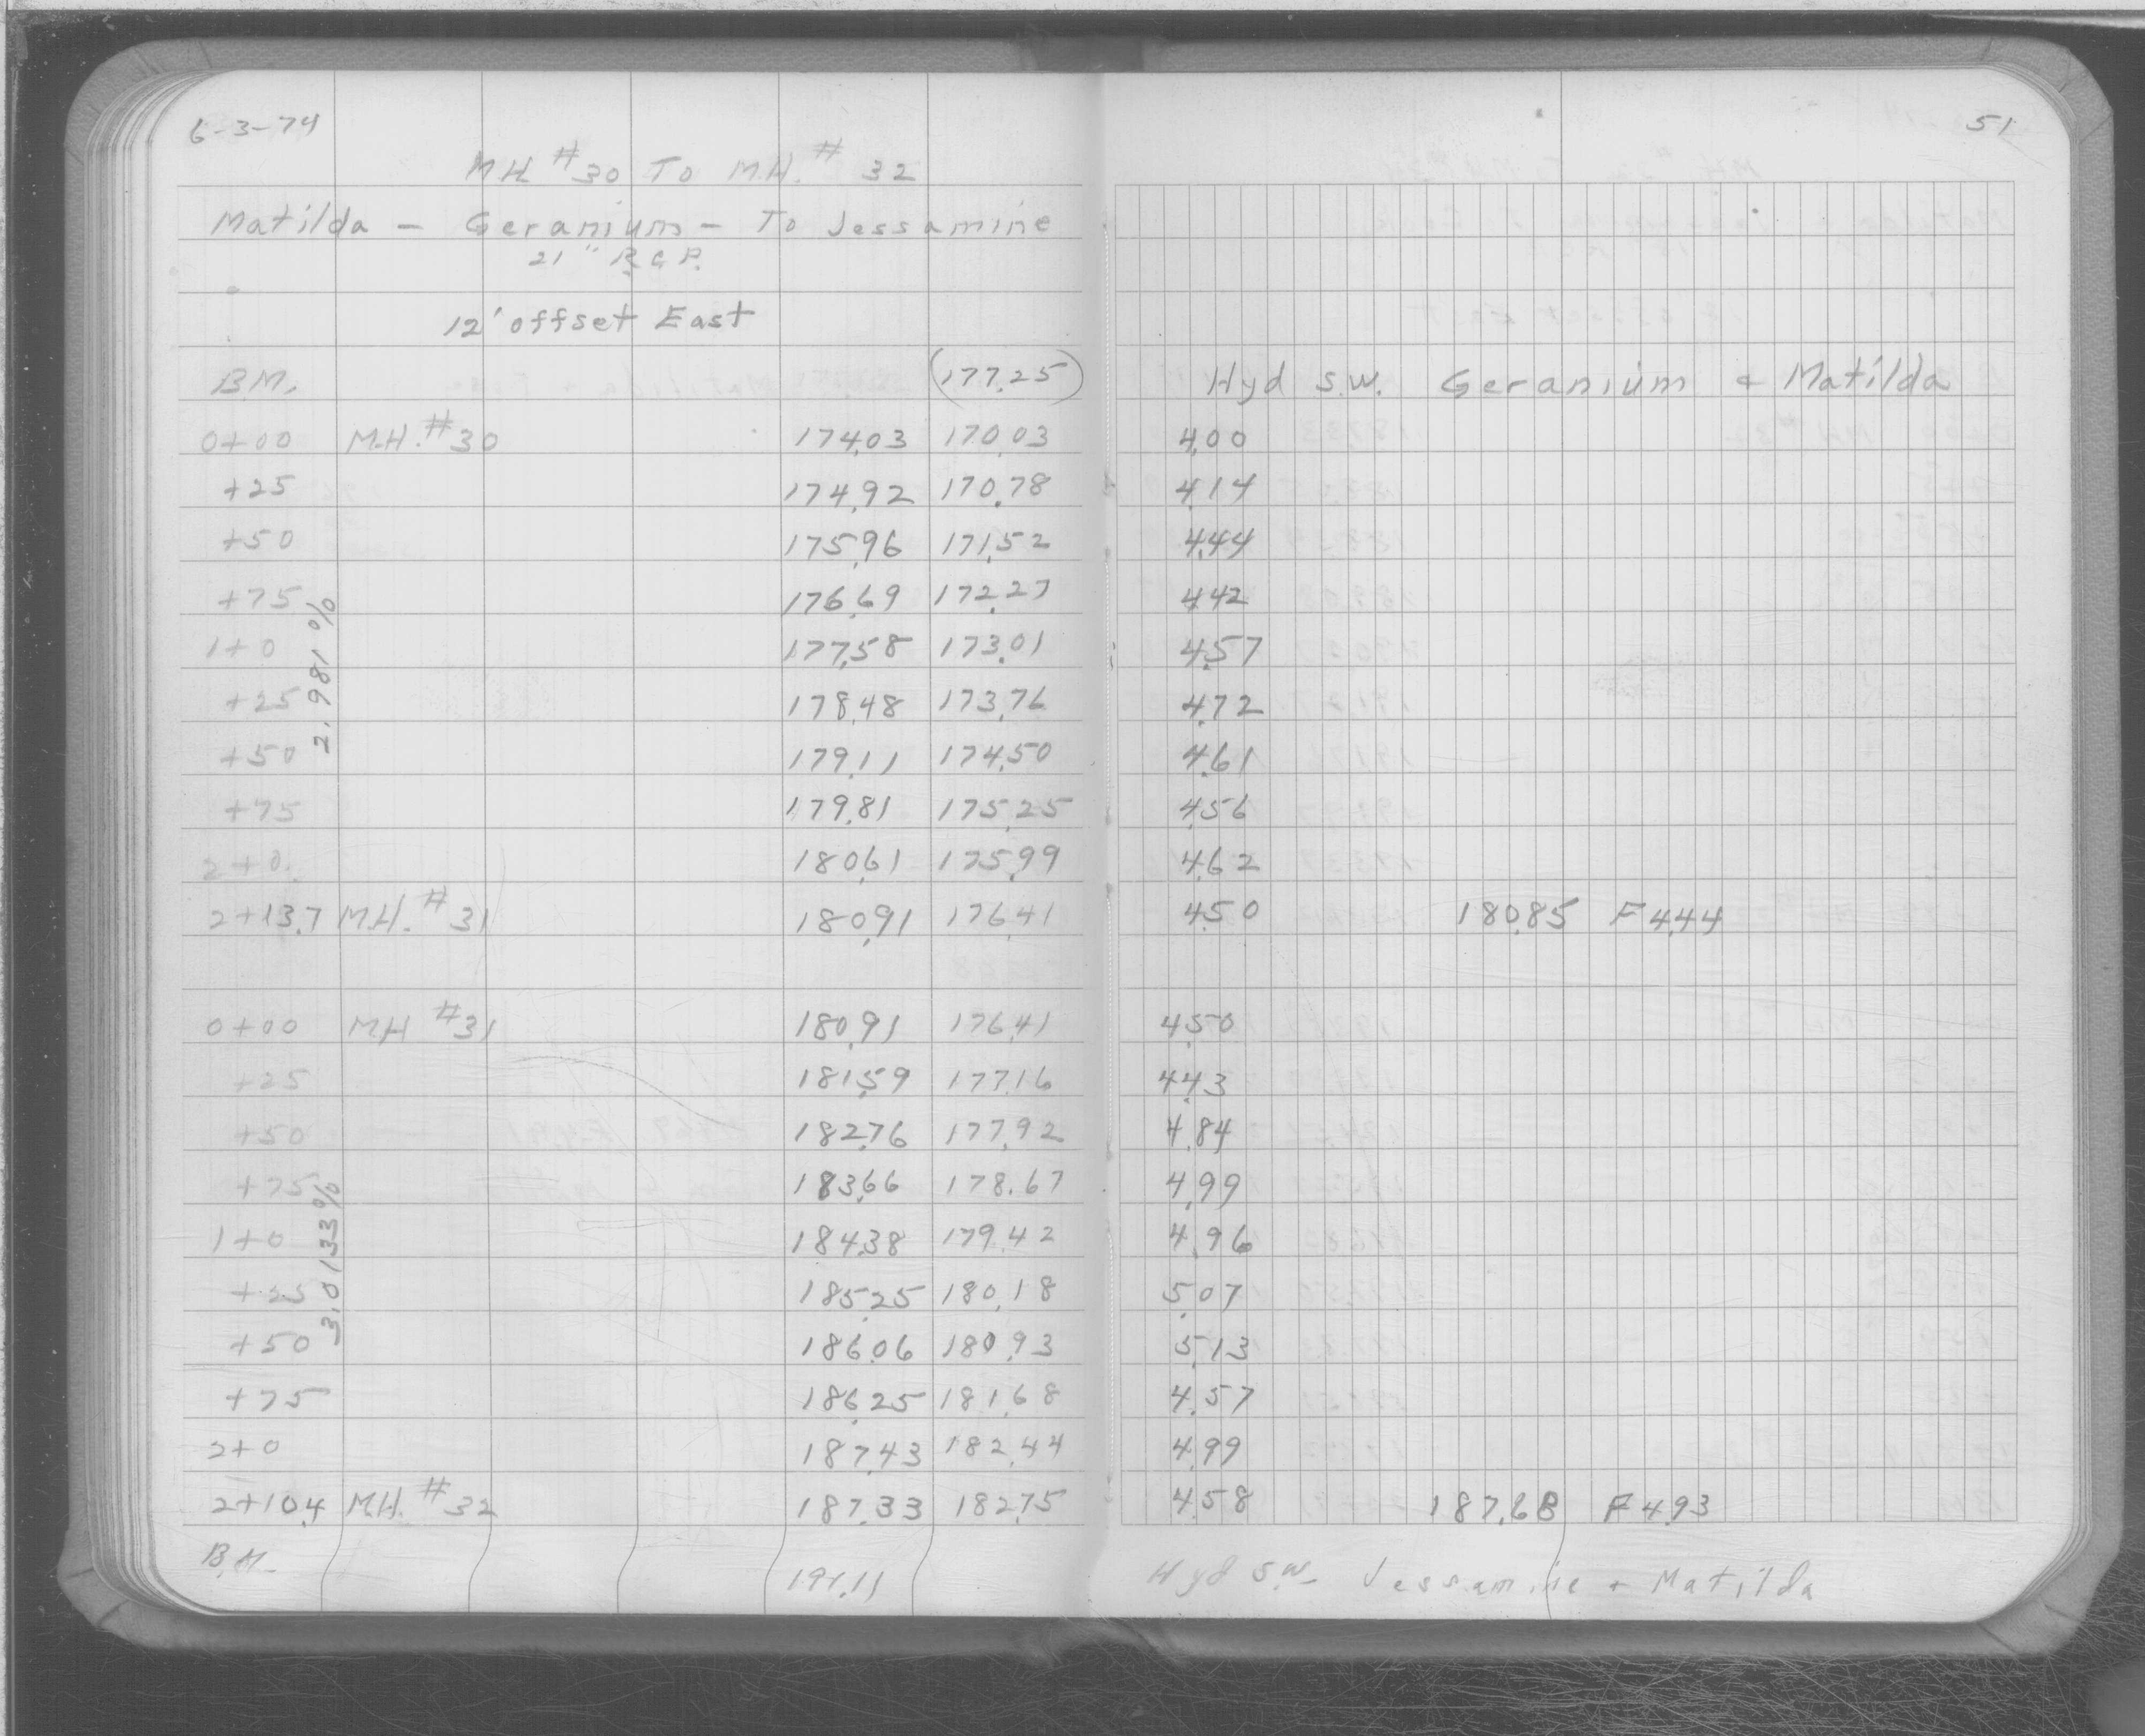 6-3-74
51
M.H. #30 To M.H. # 32
Matilda - Geranium - To Jessamine
21" R.C.P.
12' offset East
B.M. (177.25) Hyd S.W. Geranium + Matilda
0+00 M.H. #30 174.03 170.03 4.00
+25 174.92 170.78 4.14
+50 175.96 171.52 4.44
+75 176.69 172.27 4.42
1+0 177.58 173.01 4.57
+25 178.48 173.76 4.72
+50 179.11 174.50 4.61
+75 179.81 175.25 4.56
2+0 180.61 175.99 4.62
2.981 %
2+13.7 M.H. #31 180.91 176.41 4.50 180.85 F 4.44
0+00 M.H #31 180.91 176.41 4.50
+25 181.59 177.16 4.43
+50 182.76 177.92 4.84
+75 183.66 178.67 4.99
1+0 184.38 179.42 4.96
+25 185.25 180.18 5.07
+50 186.06 180.93 5.13
+75 186.25 181.68 4.57
2+0 187.43 182.44 4.99
3.0133 %
2+10.4 M.H. #32 187.33 182.75 4.58 187.68 F 4.93
B.M. 191.11 Hyd S.W. Jessamine + Matilda